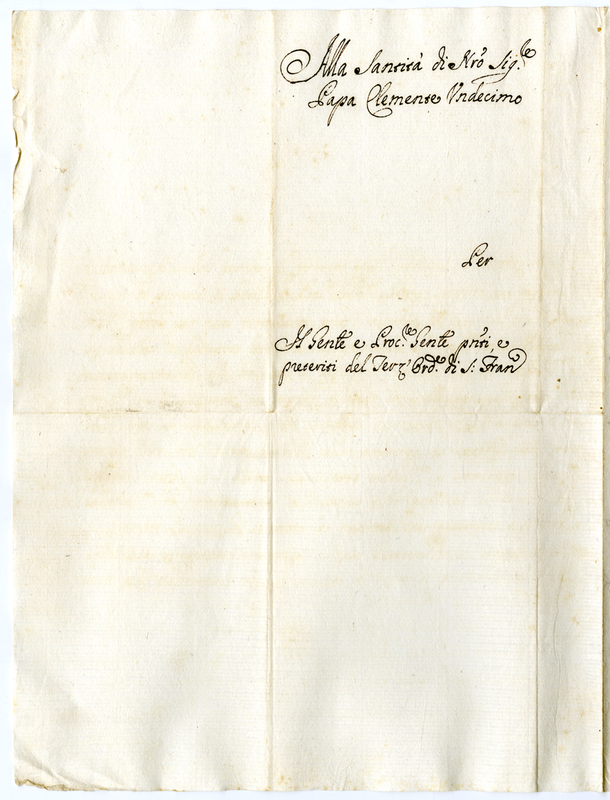 Alla Santità di Nrō Sig.re
Papa Clemente Vndecimo
Per
Il Genle e Proc.re Genle pnti e
preteriti del Terz Ord.e di S: Fran